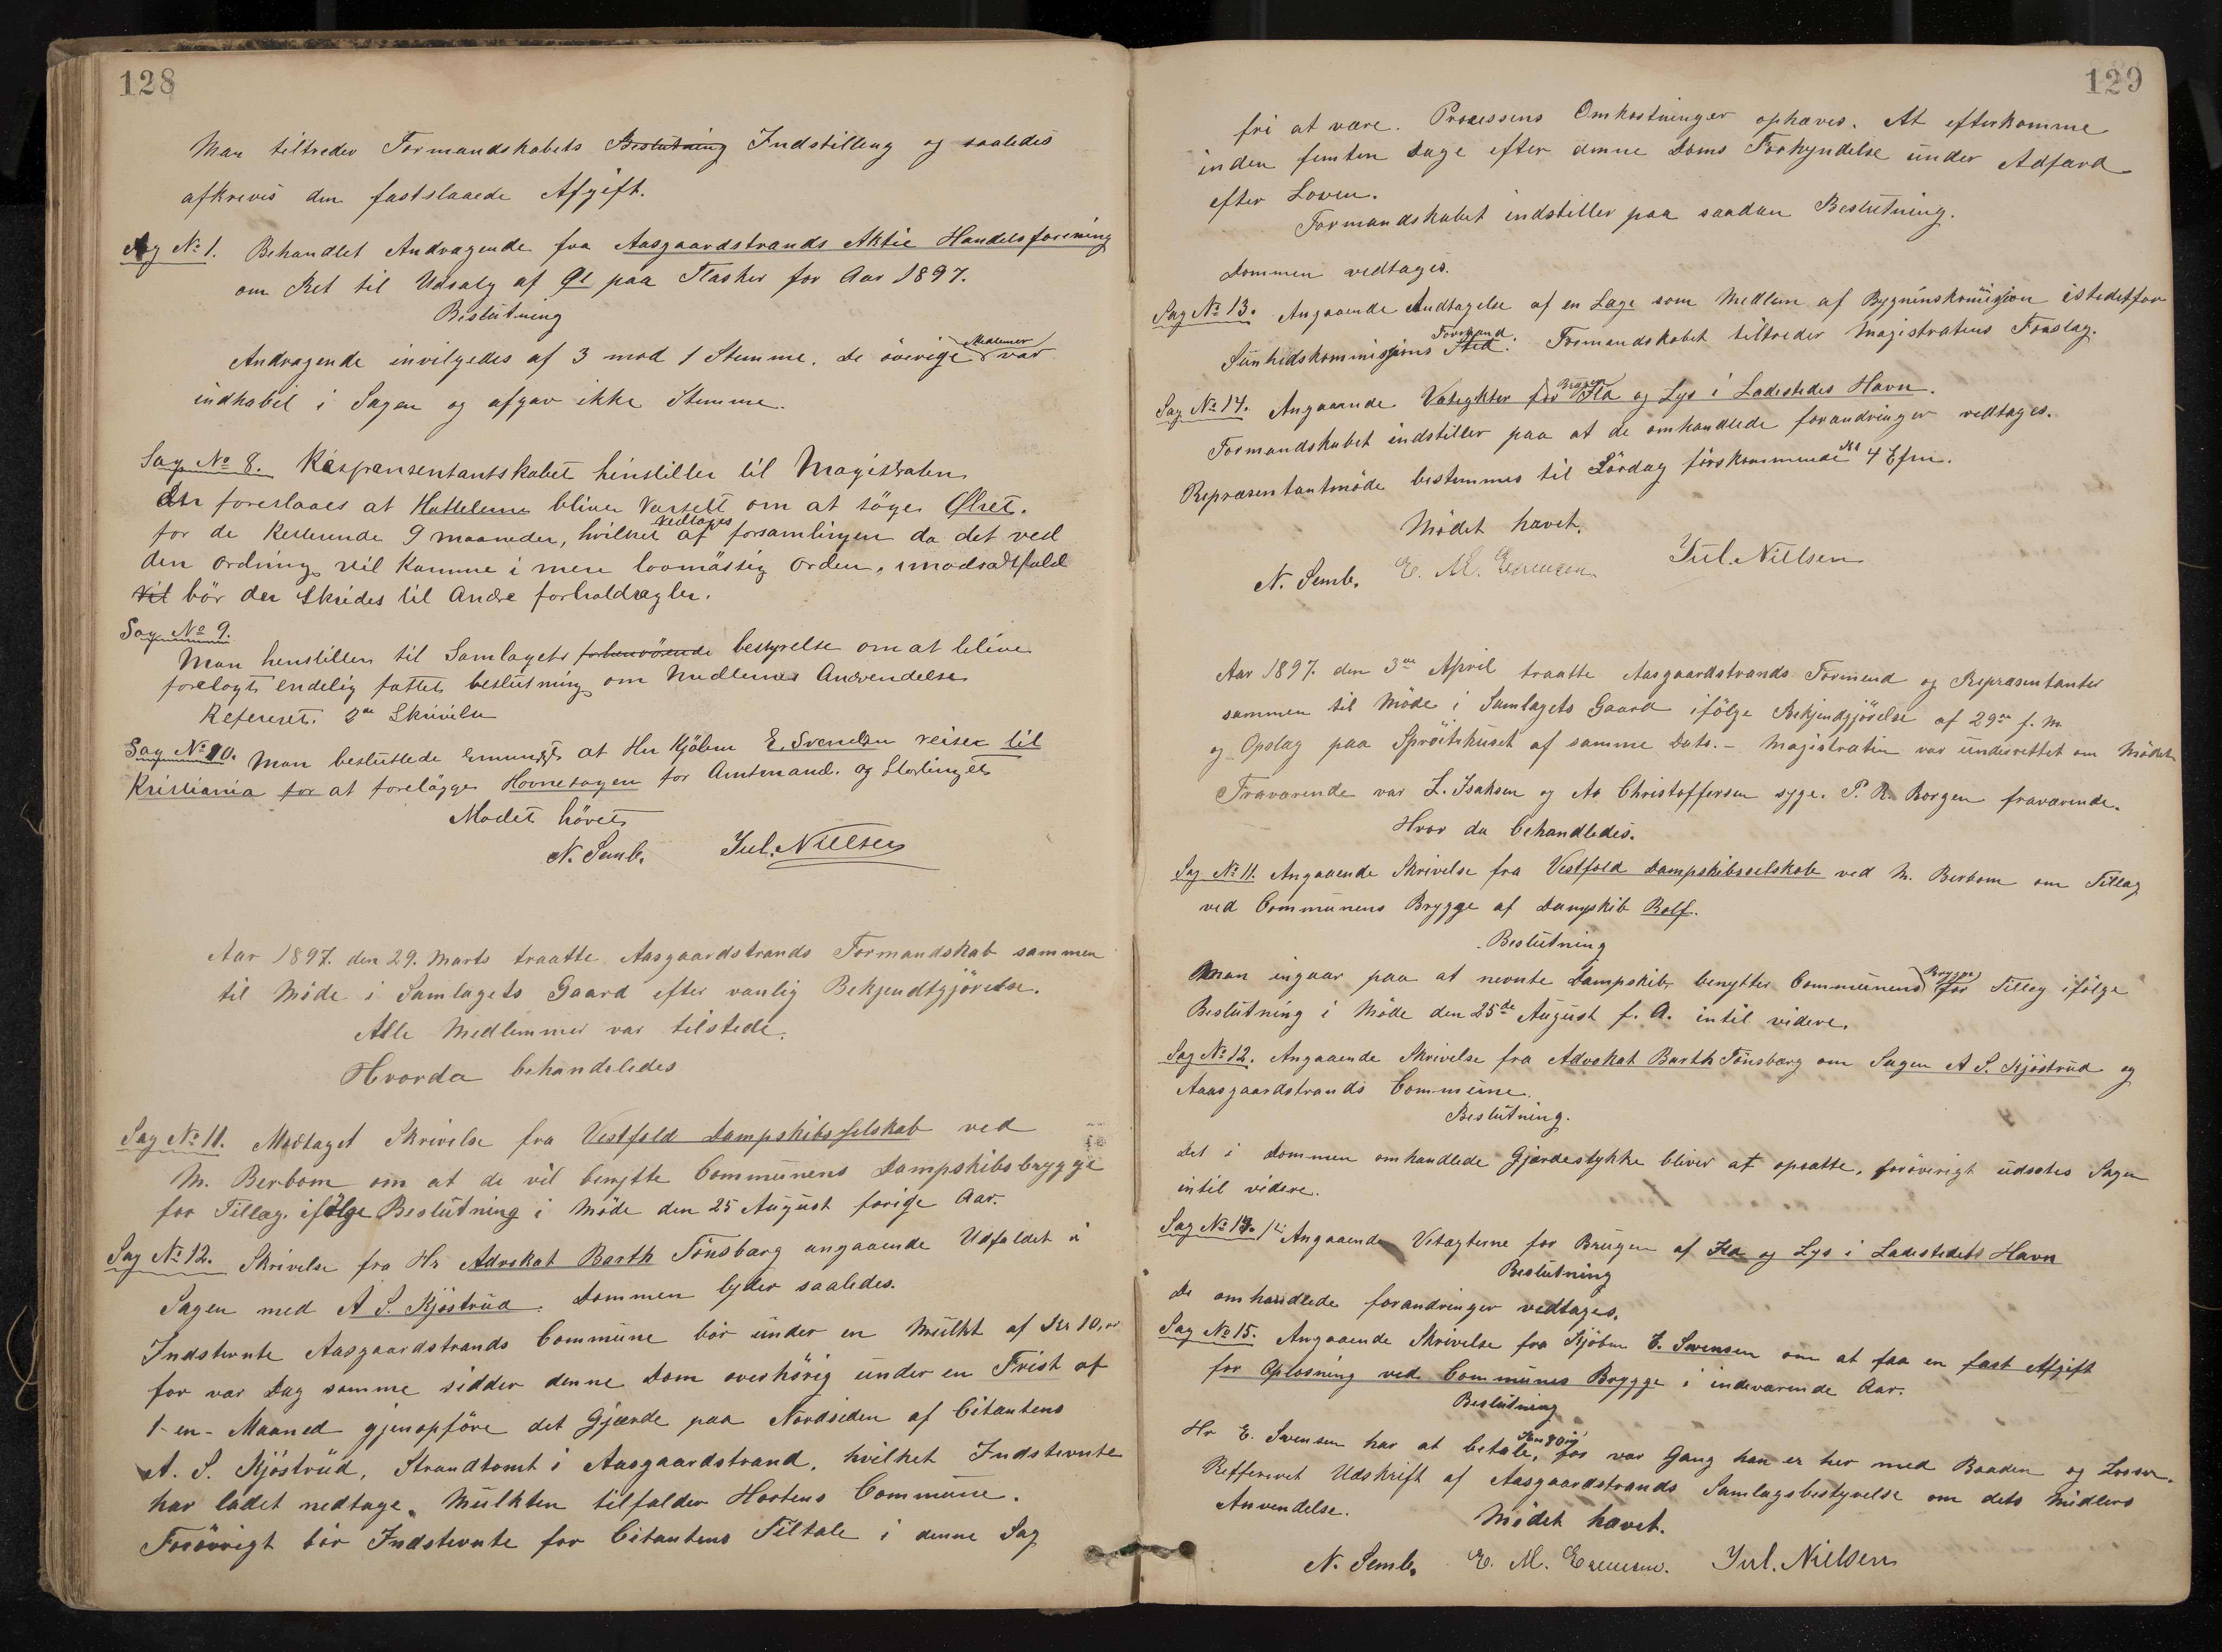 128
Man tiltreder Formandskabets Beslutning Indstilling og saaledes
afkreves den fastslaaede Afgift.
Sag No 1. Behandlet Andragende fra Aasgaardstrands Aktie Handelsforening
om Ret til Udsalg af Øl paa Flasker for Aar 1897.
Beslutning
Andragende invilgedes af 3 mod 1 Stemme. De överige Medlemer var
indhabil i Sagen og afgav ikke Stemme.
Sag No 8. henstiller til Magistraten
Der foreslaaes at Hottellerne bliver Varselt om at söge Ølret.
for de Resterende 9 maaneder, hvilket vedtages af forsamlingen da det ved
den ordning vil komme i mere lovmässig orden, imodsatfald
vil bör der skrides til Andre forholdsregler.
Sag No 9.
Man henstiller til Samlagets bestyrelse om at blive
forelagt endelig fattet beslutning om Midlernes Anvendelse
Refereret. 2de Skrivelser
Sag No 10. Man besluttede enstemigt at Her Kjöbm E. Svendsen reiser til
Kristiania for at forelägge Havnesagen for Amtmand. og Stortinget
Mödet hävet
N. Semb. Jul. Nielsen
Aar 1897. den 29. Marts traatte Aasgaardstrands Formandskab sammen
til Möde i Samlagets Gaard efter vanlig Bekjendtgjörelse.
Alle Medlemmer var tilstede.
Hvorda behandeledes
Sag No 11. Modtaget Skrivelse fra Vestfold Dampskibsselskab ved
M. Berbom om at de vil benytte Communens Dampskibsbrygge
for Tillæg. ifölge Beslutning i Möde den 25 August forige Aar.
Sag No 12. Skrivelse fra Hr Advokat Barth Tönsbærg angaaende Udfaldet i
Sagen med A S. Kjöstrud. Dommen lyder saaledes.
Indstevnte Aasgaardstrands Commune bör under en Mulkt af Kr 10,00
for vær Dag samme sidder denne Dom overhörig under en Frist af
1-en- Maaned gjenopföre det Gjærde paa Nordsiden af Citantens
A. S. Kjöstrud, Strandtomt i Aasgaardstrand, hvilket Indstevnte
har ladet nedtage. Mulkten tilfalder Hortens Commune.
Forövrigt bör Indstevnte for Citantens Tiltale i denne Sag
129
fri at være. Processens Omkostninger ophæves. At efterkomme
inden femten Dage efter denne Doms Forkyndelse under Adfærd
efter Loven.
Formandskabet indstiller paa saadan Beslutning.
Dommen vedtages.
Sag No 13. Angaaende Andtagelse af en Læge som Medlem af Bygninskomission istedetfor
Sunhedskommissions Formand Sted. Formandskabet tiltreder Magistratens Forslag.
Sag No 14. Angaaende Vetægter for Brugen Ild og Lys i Ladestedes Havn.
Formandskabet indstiller paa at de omhandlede forandringer vedtages.
Representantmöde bestemmes til Lördag förskommende Kl 4 Efm.
Mödet hævet.
N. Semb. E. M. Jul. Nielsen
Aar 1897. den 3de April traatte Aasgaardstrands Formend og Representanter
sammen til Möde i Samlagets Gaard ifölge Bekjendgjörelse af 29de f. M
og Opslag paa Spröitehuset af samme Dato. - Magistraten var underrettet om Mödet
Fraværende var L. Isaksen og Aa Christoffersen syge. P. R. Borgen fraværende.
Hvor da behandledes.
Sag No 11. Angaaende Skrivelse fra Vestfold Dampskibsselskab ved M. Berbom om Tillæg
ved Communens Brygge af Dampskib Rolf.
Beslutning
Man ingaar paa at nevnte Dampskib benytter Communens Brygge for Tilleg ifölge
Beslutning i Möde den 25de August f. A. intil videre.
Sag No 12. Angaaende Skrivelse fra Advokat Barth Tönsbærg om Sagen A S. Kjöstrud og
Aaasgaardstrands Commune.
Beslutning.
Det i Dommen omhandlede Gjærdestykke bliver at opsætte, foröverigt udsætes Sagen
intil videre.
Sag No 14. Angaaende Vetægterne for Brugen af Ild og Lys i Ladestedets Havn
Beslutning
De omhandlede forandringer vedtages.
Sag No 15. Angaaende Skrivelse fra Kjöbm E. Svensen om at faa en fast Afgift
for Oplosning ved Communes Brygge i indeværende Aar.
Beslutning
Hr E. Svensen har at betale, for vær Gang han er her med Baaden og Losser.
Reffereret Udskrift af Aasgaardstrands Samlagsbestyrelse om dets Midlers
Anvendelse.
Mödet hævet.
N. Semb. E. M. Jul. Nielsen